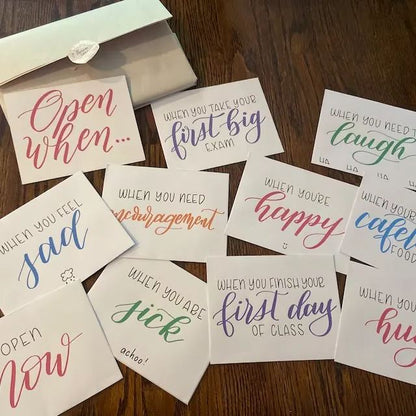 Open
when...
WHEN YOU TAKE YOUR
first big
EXAM
WHEN YOU NEED
laugh
HA HA HA
WHEN YOU FEEL
sad
WHEN YOU NEED
encouragement
WHEN YOU'RE
happy
:)
WHEN YOU
FOOD
OPEN
now
WHEN YOU ARE
sick
achoo!
WHEN YOU FINISH YOUR
first day
OF CLASS
WHEN YOU